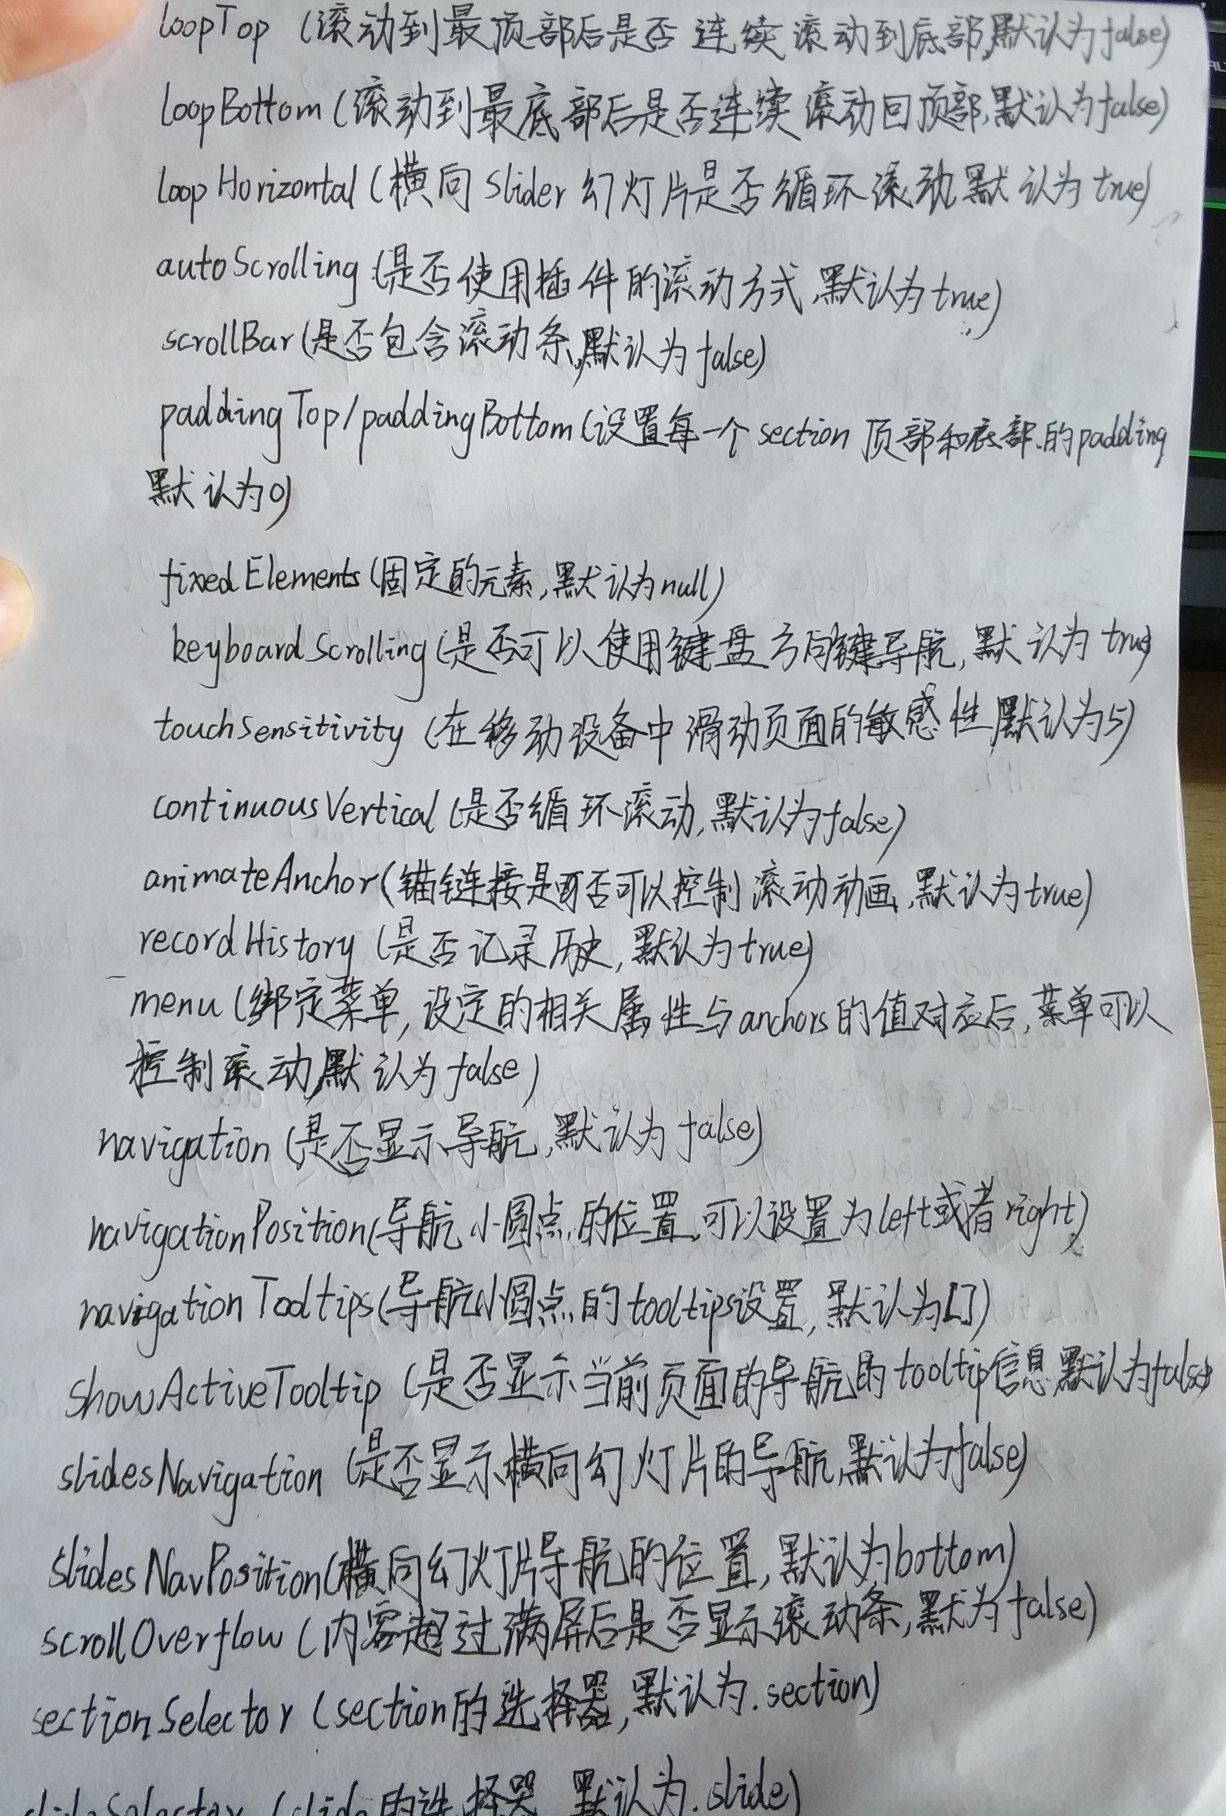 loopTop (滚动到最顶部后是否连续滚动到底部,默认为false)
loopBottom(滚动到最底部后是否连续滚动回顶部,默认为false)
loopHorizontal(横向slider幻灯片是否循环滚动默认为true)
autoScrolling(是否使用插件的滚动方式,默认为true)
scrollBar(是否包含滚动条,默认为false)
paddingTop/paddingBottom(设置每一个section顶部和底部的padding
默认为0)
fixedElements(固定的元素,默认为null)
keyboardScrolling(是否可以使用键盘方向键导航,默认为true)
touchSensitivity(在移动设备中滑动页面的敏感性,默认为5)
continuousVertical(是否循环滚动,默认为false)
animateAnchor(锚链接是否可以控制滚动动画,默认为true)
recordHistory(是否记录历史,默认为true)
menu(绑定菜单,设定的相关属性与anchors的值对应后,菜单可以
控制滚动,默认为false)
navigation(是否显示导航,默认为false)
navigationPosition(导航小圆点的位置,可以设置为left或者right)
navigationTooltips(导航小圆点的tooltips设置,默认为[])
showActiveTooltip(是否显示当前页面的导航的tooltip信息默认为false)
slidesNavigation(是否显示横向幻灯片的导航,默认为false)
slidesNavPosition(横向幻灯片导航的位置,默认为bottom)
scrollOverflow(内容超过满屏后是否显示滚动条,默为false)
sectionSelector(section的选择器,默认为.section)
slideSelector(slide的选择器,默认为.slide)